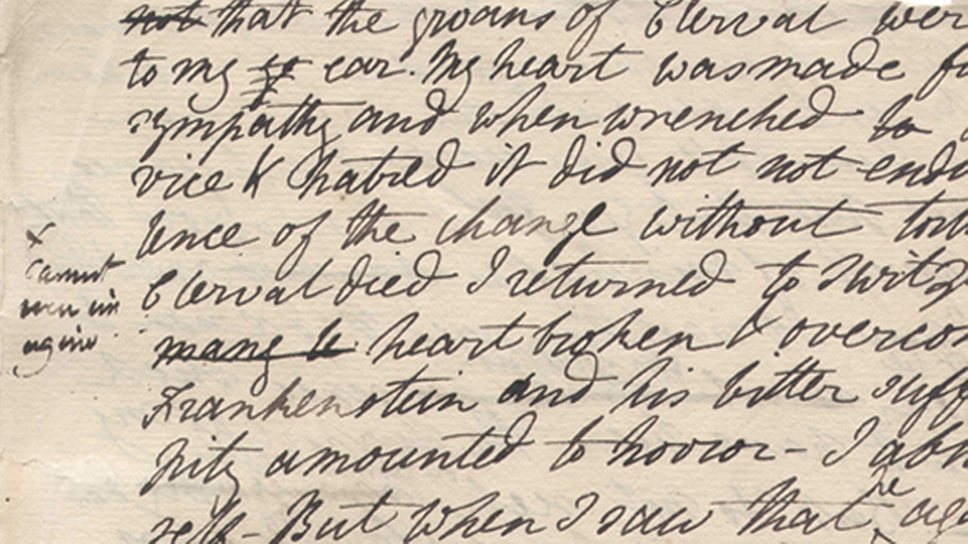 not that the groans of Clerval wer
to my ear. My heart was made f
sympathy and when wrenched to
vice & hatred it did not not endu
lence of the change without tor
Clerval died I returned to Switz
heart broken & overcom
Frankenstein and his bitter suff
pity amounted to horror - I abh
self - But when I saw that he ag